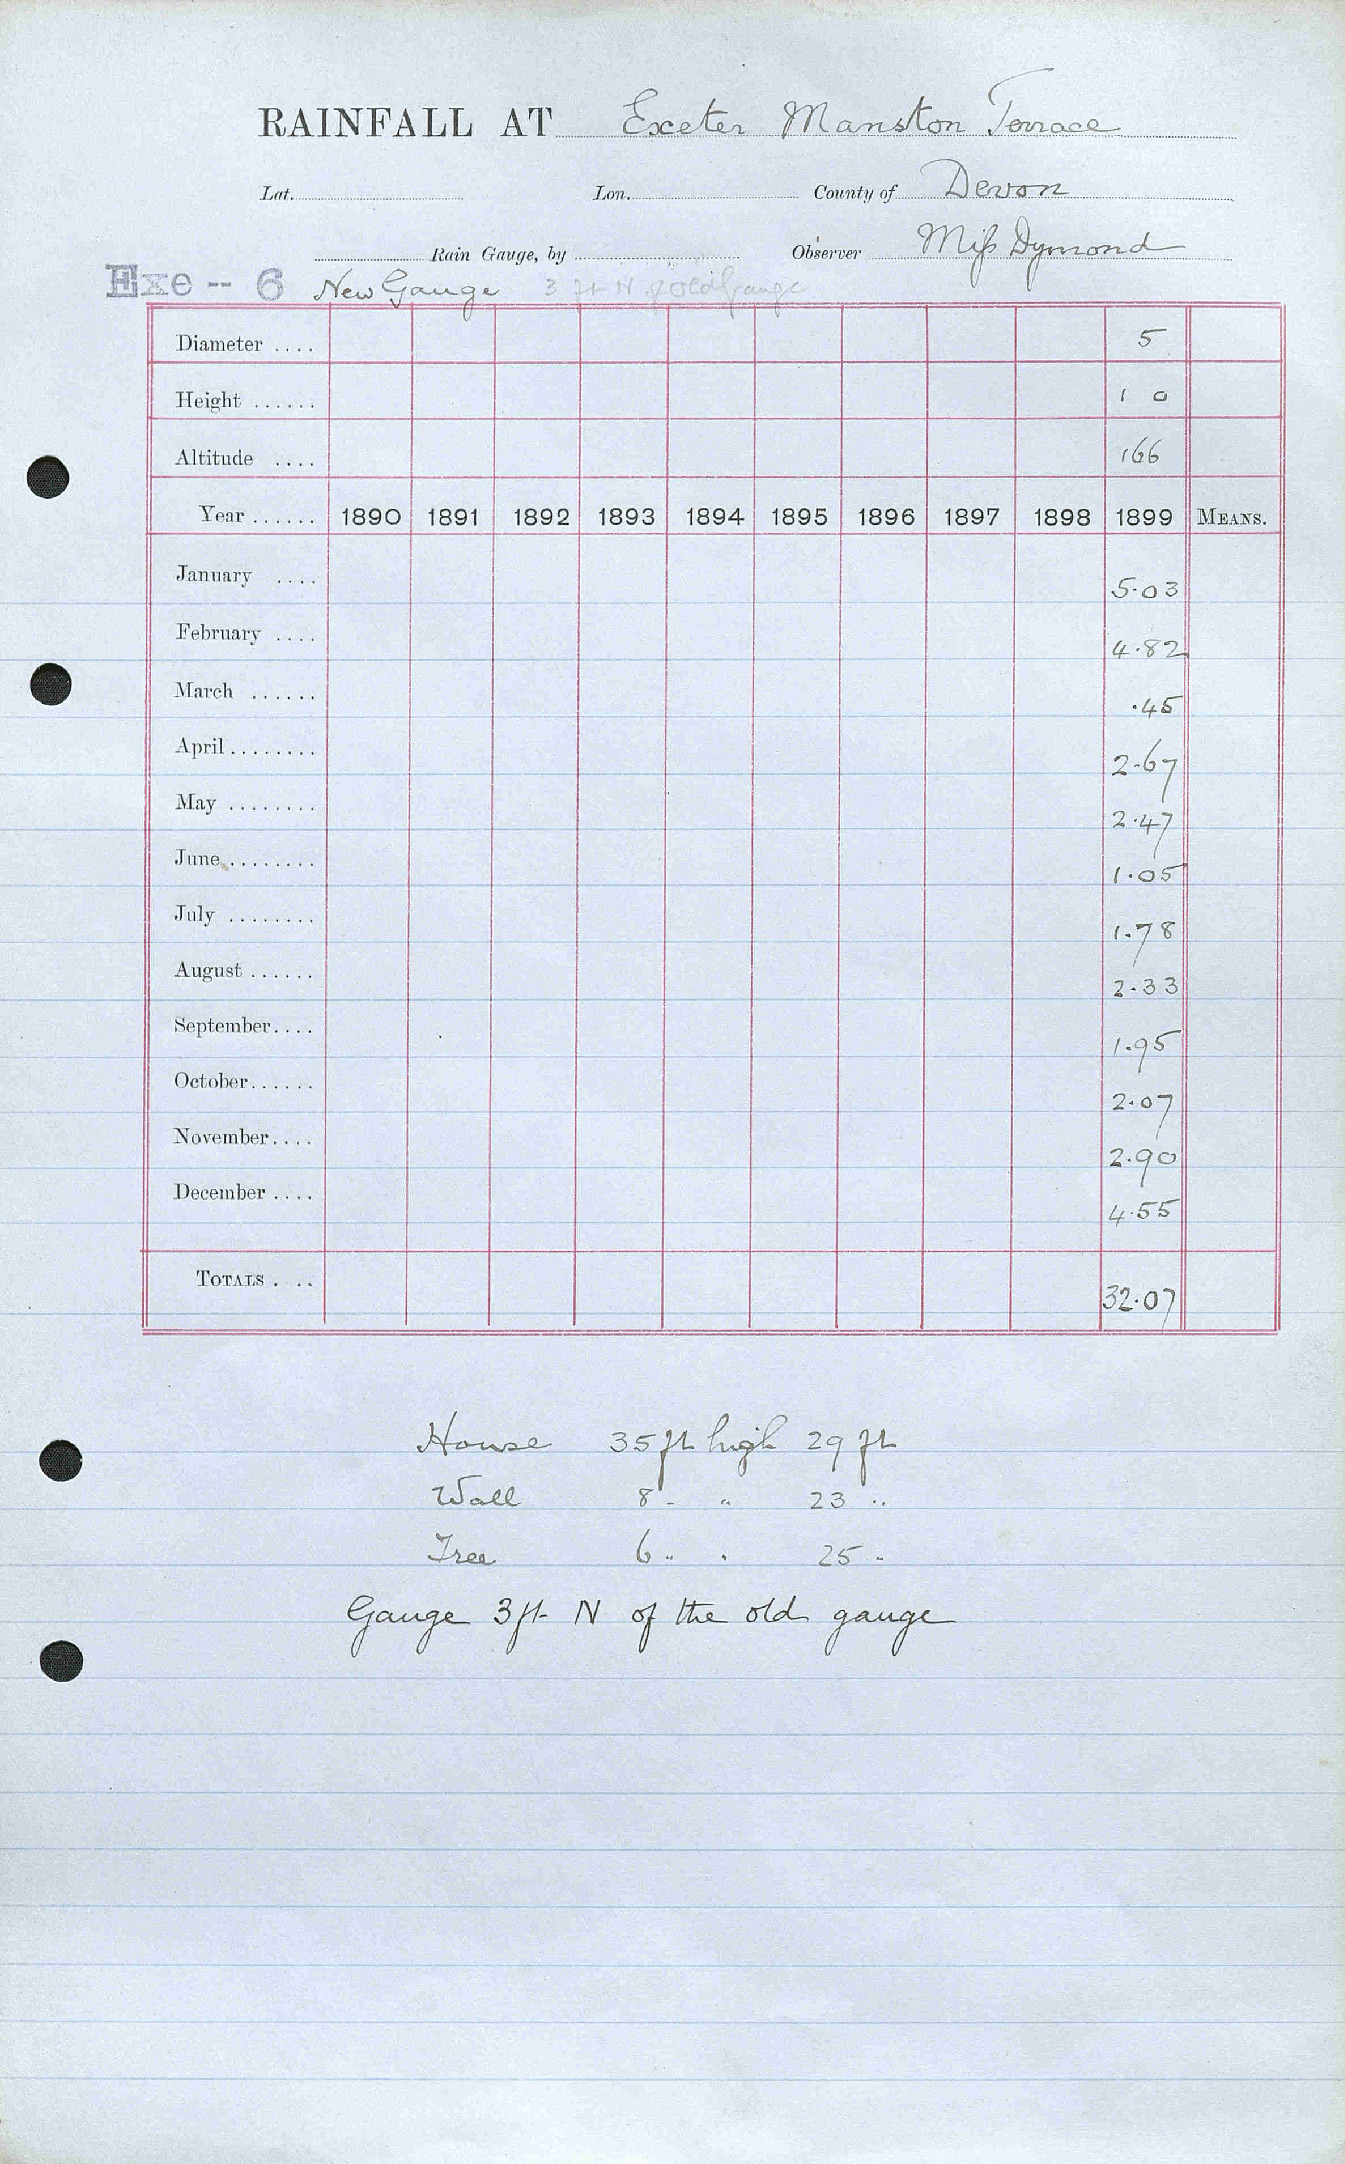 RAINFALL AT Exeter Manston Terrace
Lat. Lon. County of Devon
Rain Gauge, by Observer Miss Dymond
Exe -- 6 New Gauge 3 ft N of old Gauge
Diameter .... 5
Height ...... 1 0
Altitude .... 166
Year ...... 1890 1891 1892 1893 1894 1895 1896 1897 1898 1899 MEANS.
January .... 5.03
February .... 4.82
March ...... .45
April ........ 2.67
May ........ 2.47
June ........ 1.05
July ........ 1.78
August ...... 2.33
September.... 1.95
October...... 2.07
November.... 2.90
December .... 4.55
TOTALS . .. 32.07
House 35 ft high 29 ft
Wall 8 - " 23 "
Tree 6 " " 25 "
Gauge 3 ft N of the old gauge